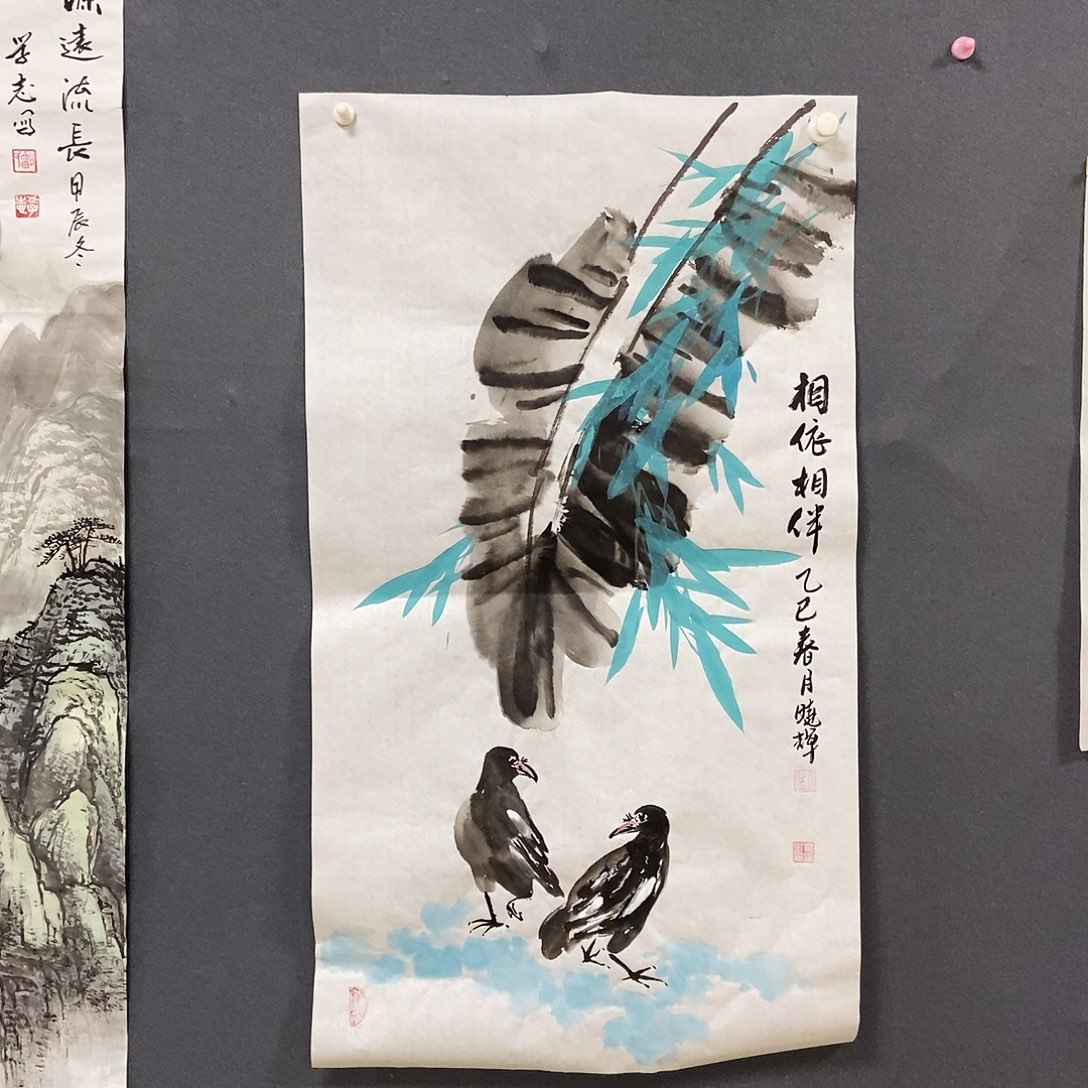 相依相伴
乙巳春月曉輝
遠流長
甲辰冬
学志写